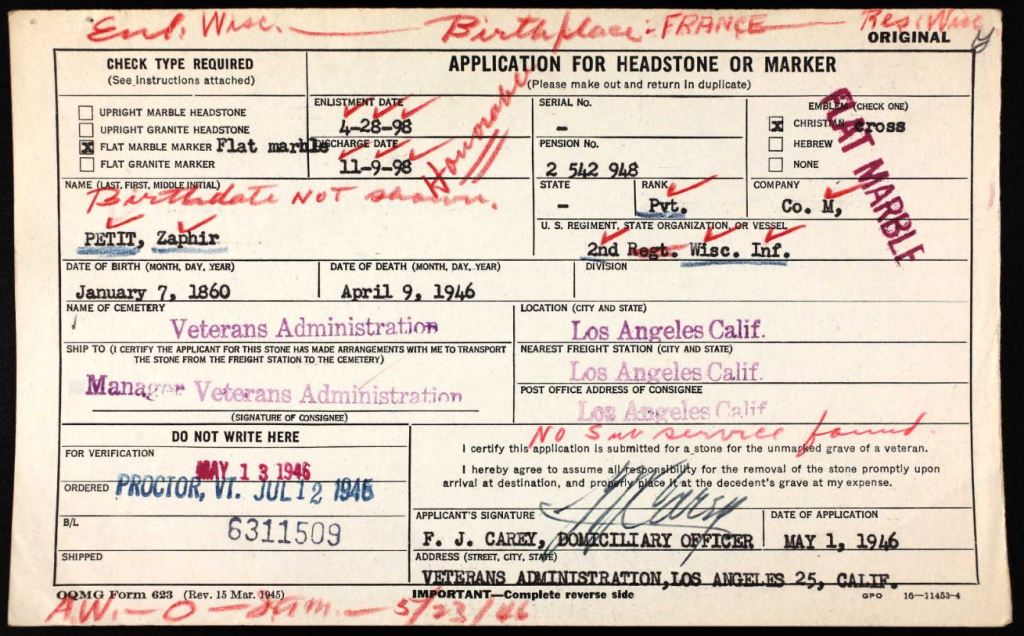 Enl. Wisc. — Birthplace - FRANCE — Res: Wisc
ORIGINAL
CHECK TYPE REQUIRED
(See instructions attached)
UPRIGHT MARBLE HEADSTONE
UPRIGHT GRANITE HEADSTONE
x FLAT MARBLE MARKER Flat marble
FLAT GRANITE MARKER
APPLICATION FOR HEADSTONE OR MARKER
(Please make out and return in duplicate)
ENLISTMENT DATE
4-28-98
DISCHARGE DATE
11-9-98
Honorable
SERIAL No.
-
PENSION No.
2 542 948
EMBLEM (CHECK ONE)
x CHRISTIAN cross
HEBREW
NONE
FLAT MARBLE
NAME (LAST, FIRST, MIDDLE INITIAL)
Birthdate NOT shown.
PETIT, Zaphir
STATE
-
RANK
Pvt.
COMPANY
Co. M,
U. S. REGIMENT, STATE ORGANIZATION, OR VESSEL
2nd Regt. Wisc. Inf.
DATE OF BIRTH (MONTH, DAY, YEAR)
January 7, 1860
DATE OF DEATH (MONTH, DAY, YEAR)
April 9, 1946
DIVISION
NAME OF CEMETERY
Veterans Administration
LOCATION (CITY AND STATE)
Los Angeles Calif.
SHIP TO (I CERTIFY THE APPLICANT FOR THIS STONE HAS MADE ARRANGEMENTS WITH ME TO TRANSPORT
THE STONE FROM THE FREIGHT STATION TO THE CEMETERY)
Manager Veterans Administration
(SIGNATURE OF CONSIGNEE)
NEAREST FREIGHT STATION (CITY AND STATE)
Los Angeles Calif.
POST OFFICE ADDRESS OF CONSIGNEE
Los Angeles Calif
DO NOT WRITE HERE
FOR VERIFICATION
MAY 13 1946
ORDERED PROCTOR, VT. JUL 12 1946
B/L
6311509
SHIPPED
No Sub service found.
I certify this application is submitted for a stone for the unmarked grave of a veteran.
I hereby agree to assume all responsibility for the removal of the stone promptly upon
arrival at destination, and properly place it at the decedent's grave at my expense.
APPLICANT'S SIGNATURE
F. J. CAREY, DOMICILIARY OFFICER
DATE OF APPLICATION
MAY 1, 1946
ADDRESS (STREET, CITY, STATE)
VETERANS ADMINISTRATION, LOS ANGELES 25, CALIF.
OQMG Form 623 (Rev. 15 Mar. 1945)
IMPORTANT—Complete reverse side
GPO 16—11453-4
5/23/46